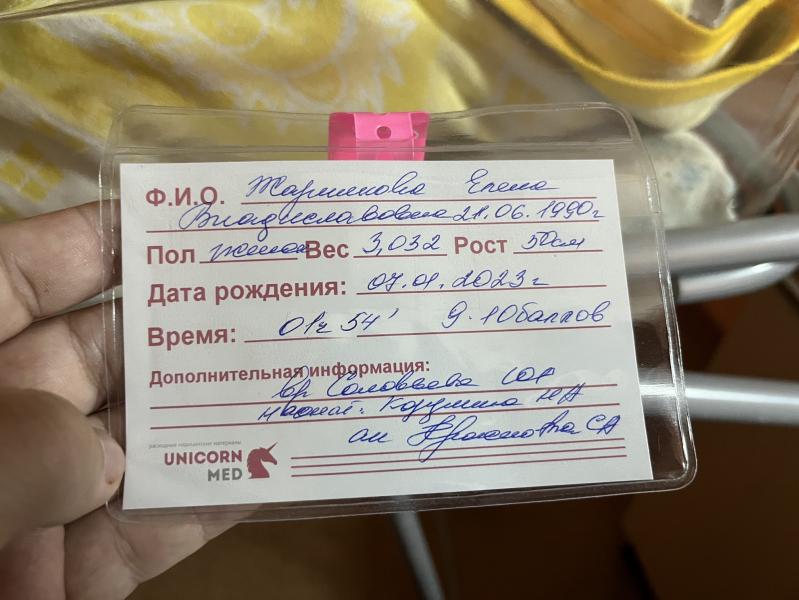 Ф.И.О. Жаринова Елена
Владиславовна 21.06.1990г
Пол женск Вес 3,032 Рост 50см
Дата рождения: 07.01.2023г
Время: 01ч 54' 9-10баллов
Дополнительная информация:
вр Соловьева
неонат:
ак СА
расходные медицинские материалы
UNICORN
MED